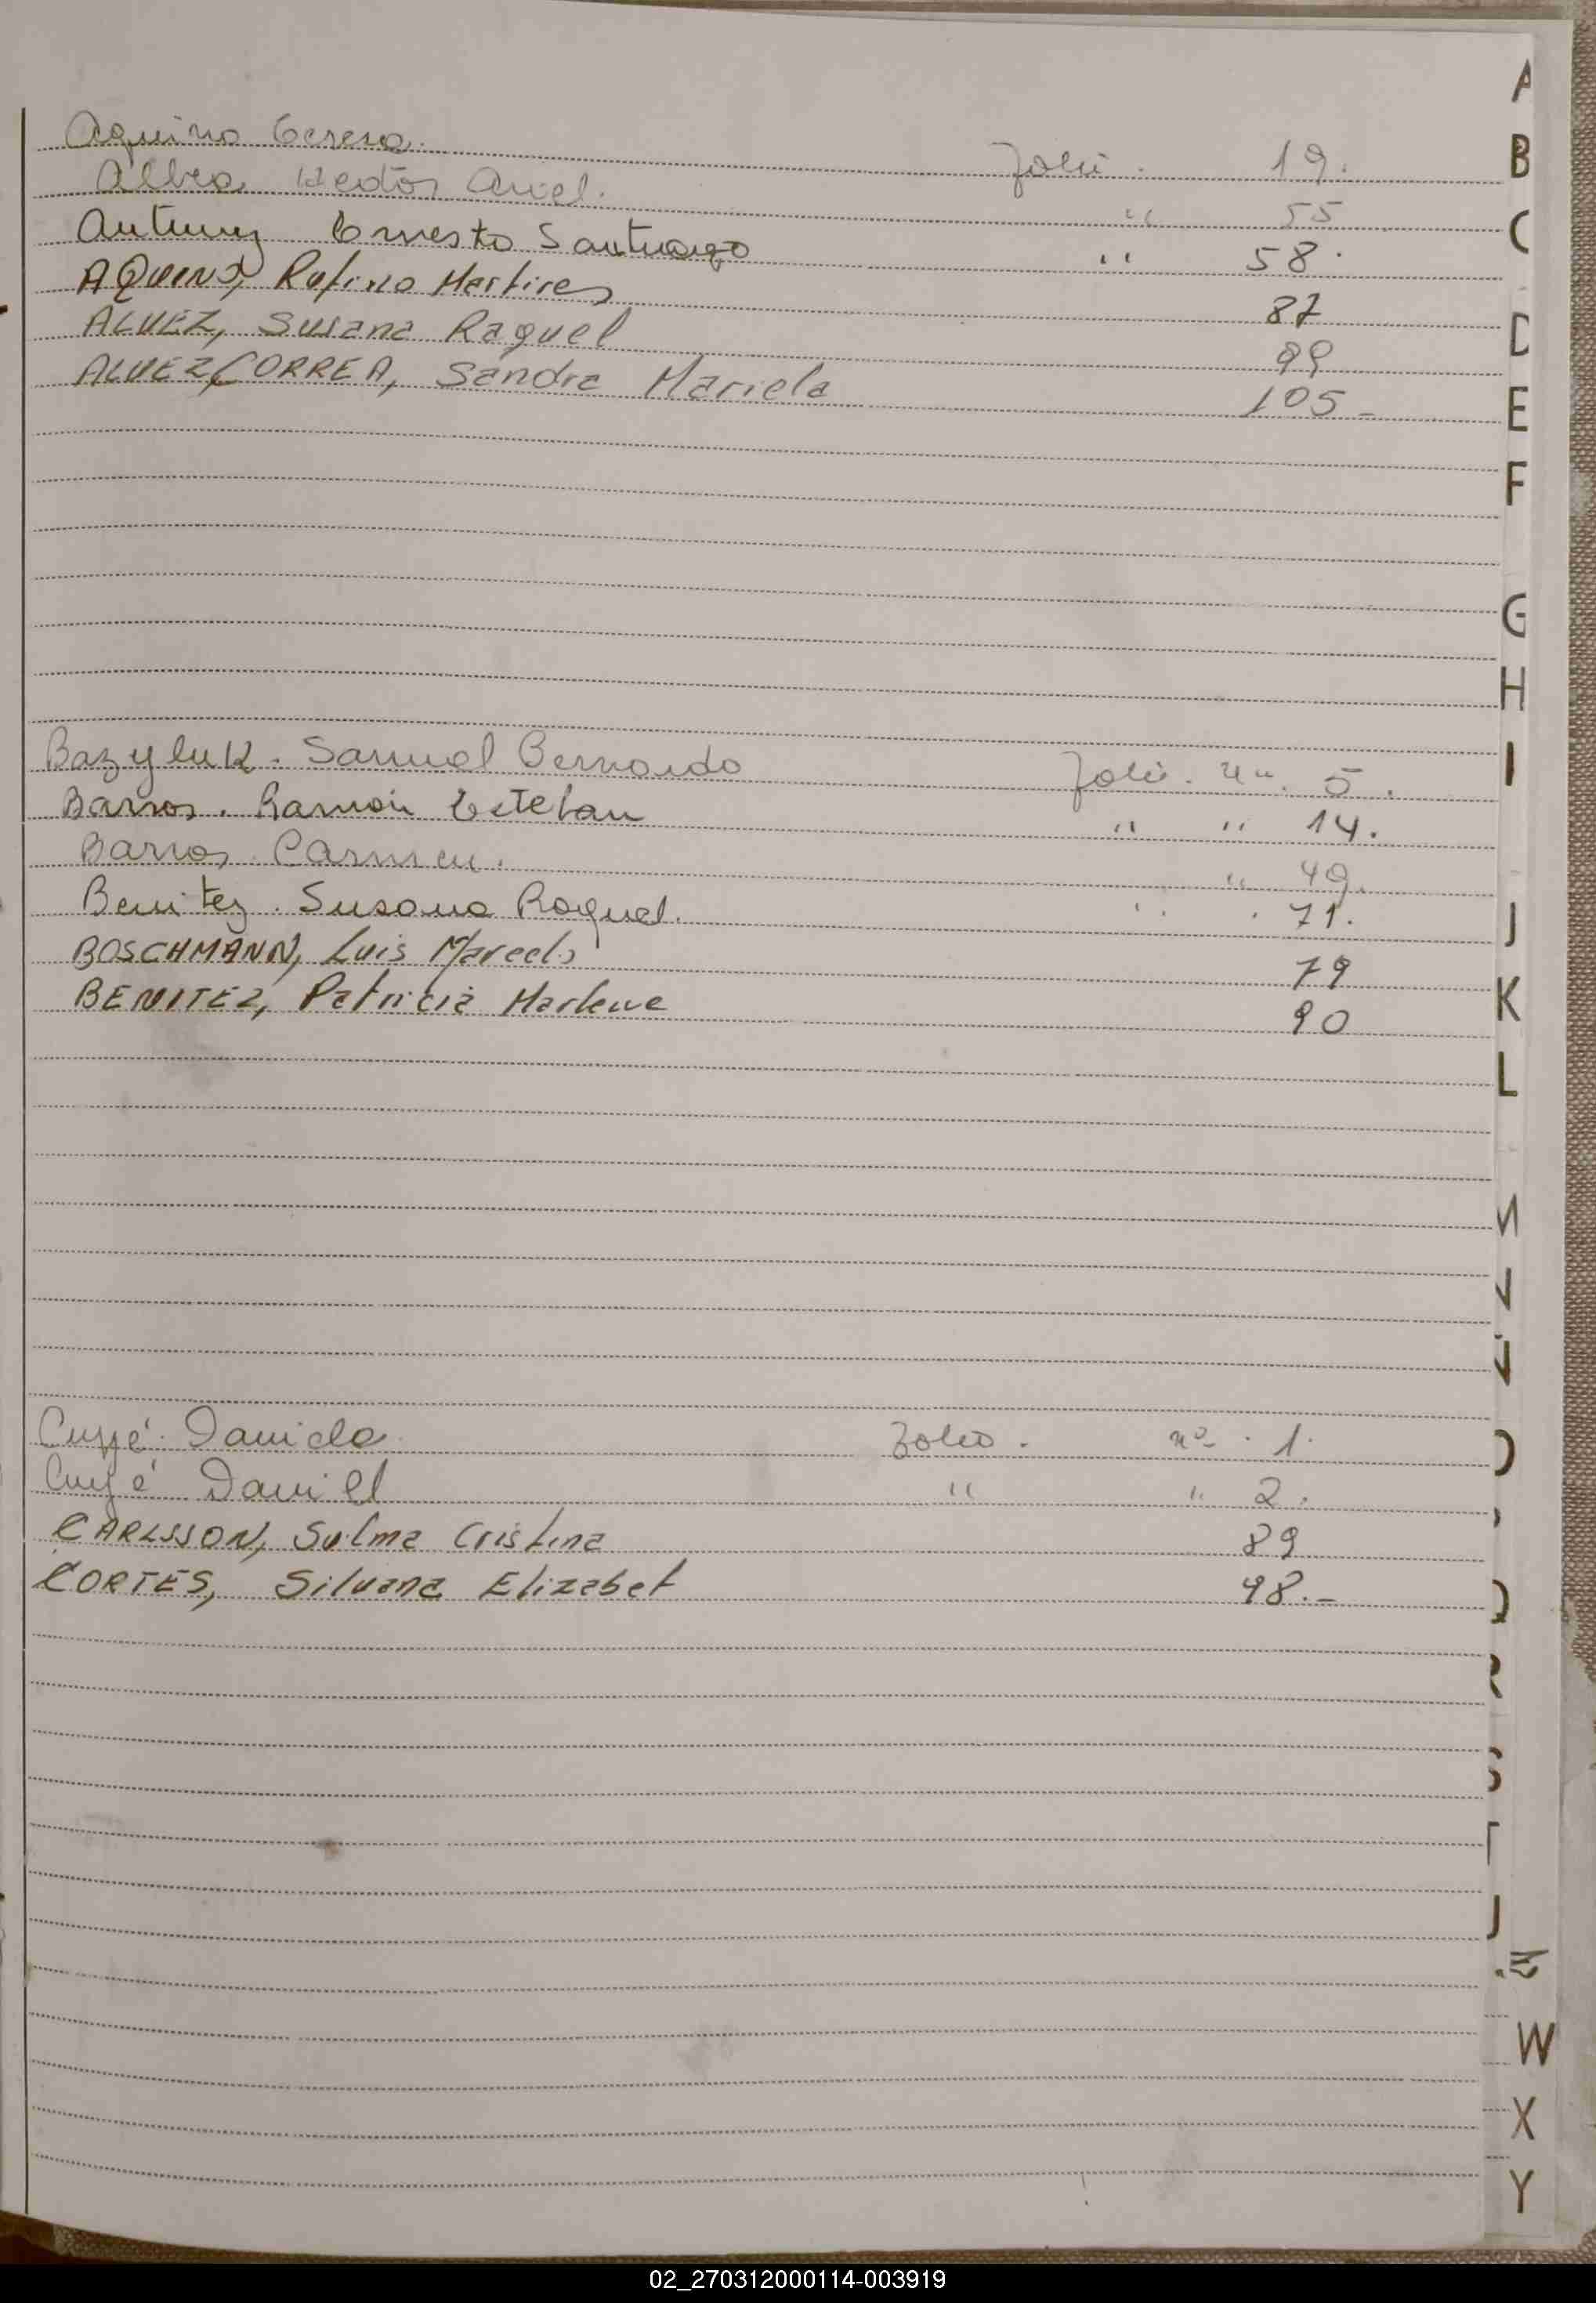 A
Aquino Teresa. Folio. 19.
B
Albea Hector Ariel. " 55
C
Antunez Ernesto Santiago " 58.
AQUINO, Rufino Martires 87
D
ALVEZ, Susana Raquel 99
ALVEZ CORREA, Sandra Mariela 105-
E
F
G
H
Bazyluk. Samuel Bernardo Folio. 5.
I
Barros. Ramón Esteban " " 14.
Barros. Carmen. " 49.
Benitez. Susana Raquel. 71.
J
BOSCHMANN, Luis Marcelo 79
BENITEZ, Patricia Marlene 90
K
L
M
N
Ñ
Daniela Folio. nº. 1.
O
Daniel " " 2.
CARLSSON, Sulma Cristina 89
CORTES, Silvana Elizabet 98.-
Q
R
S
T
W
X
Y
02_270312000114-003919